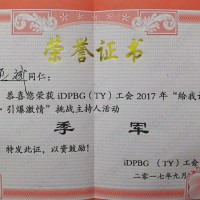 荣誉证书
斌 同仁:
恭喜您荣获 iDPBG（TY）工会 2017 年“给我
·引爆激情”挑战主持人活动
季 军
特发此证，以资鼓励！
iDPBG（TY）工会
二零一七年九月